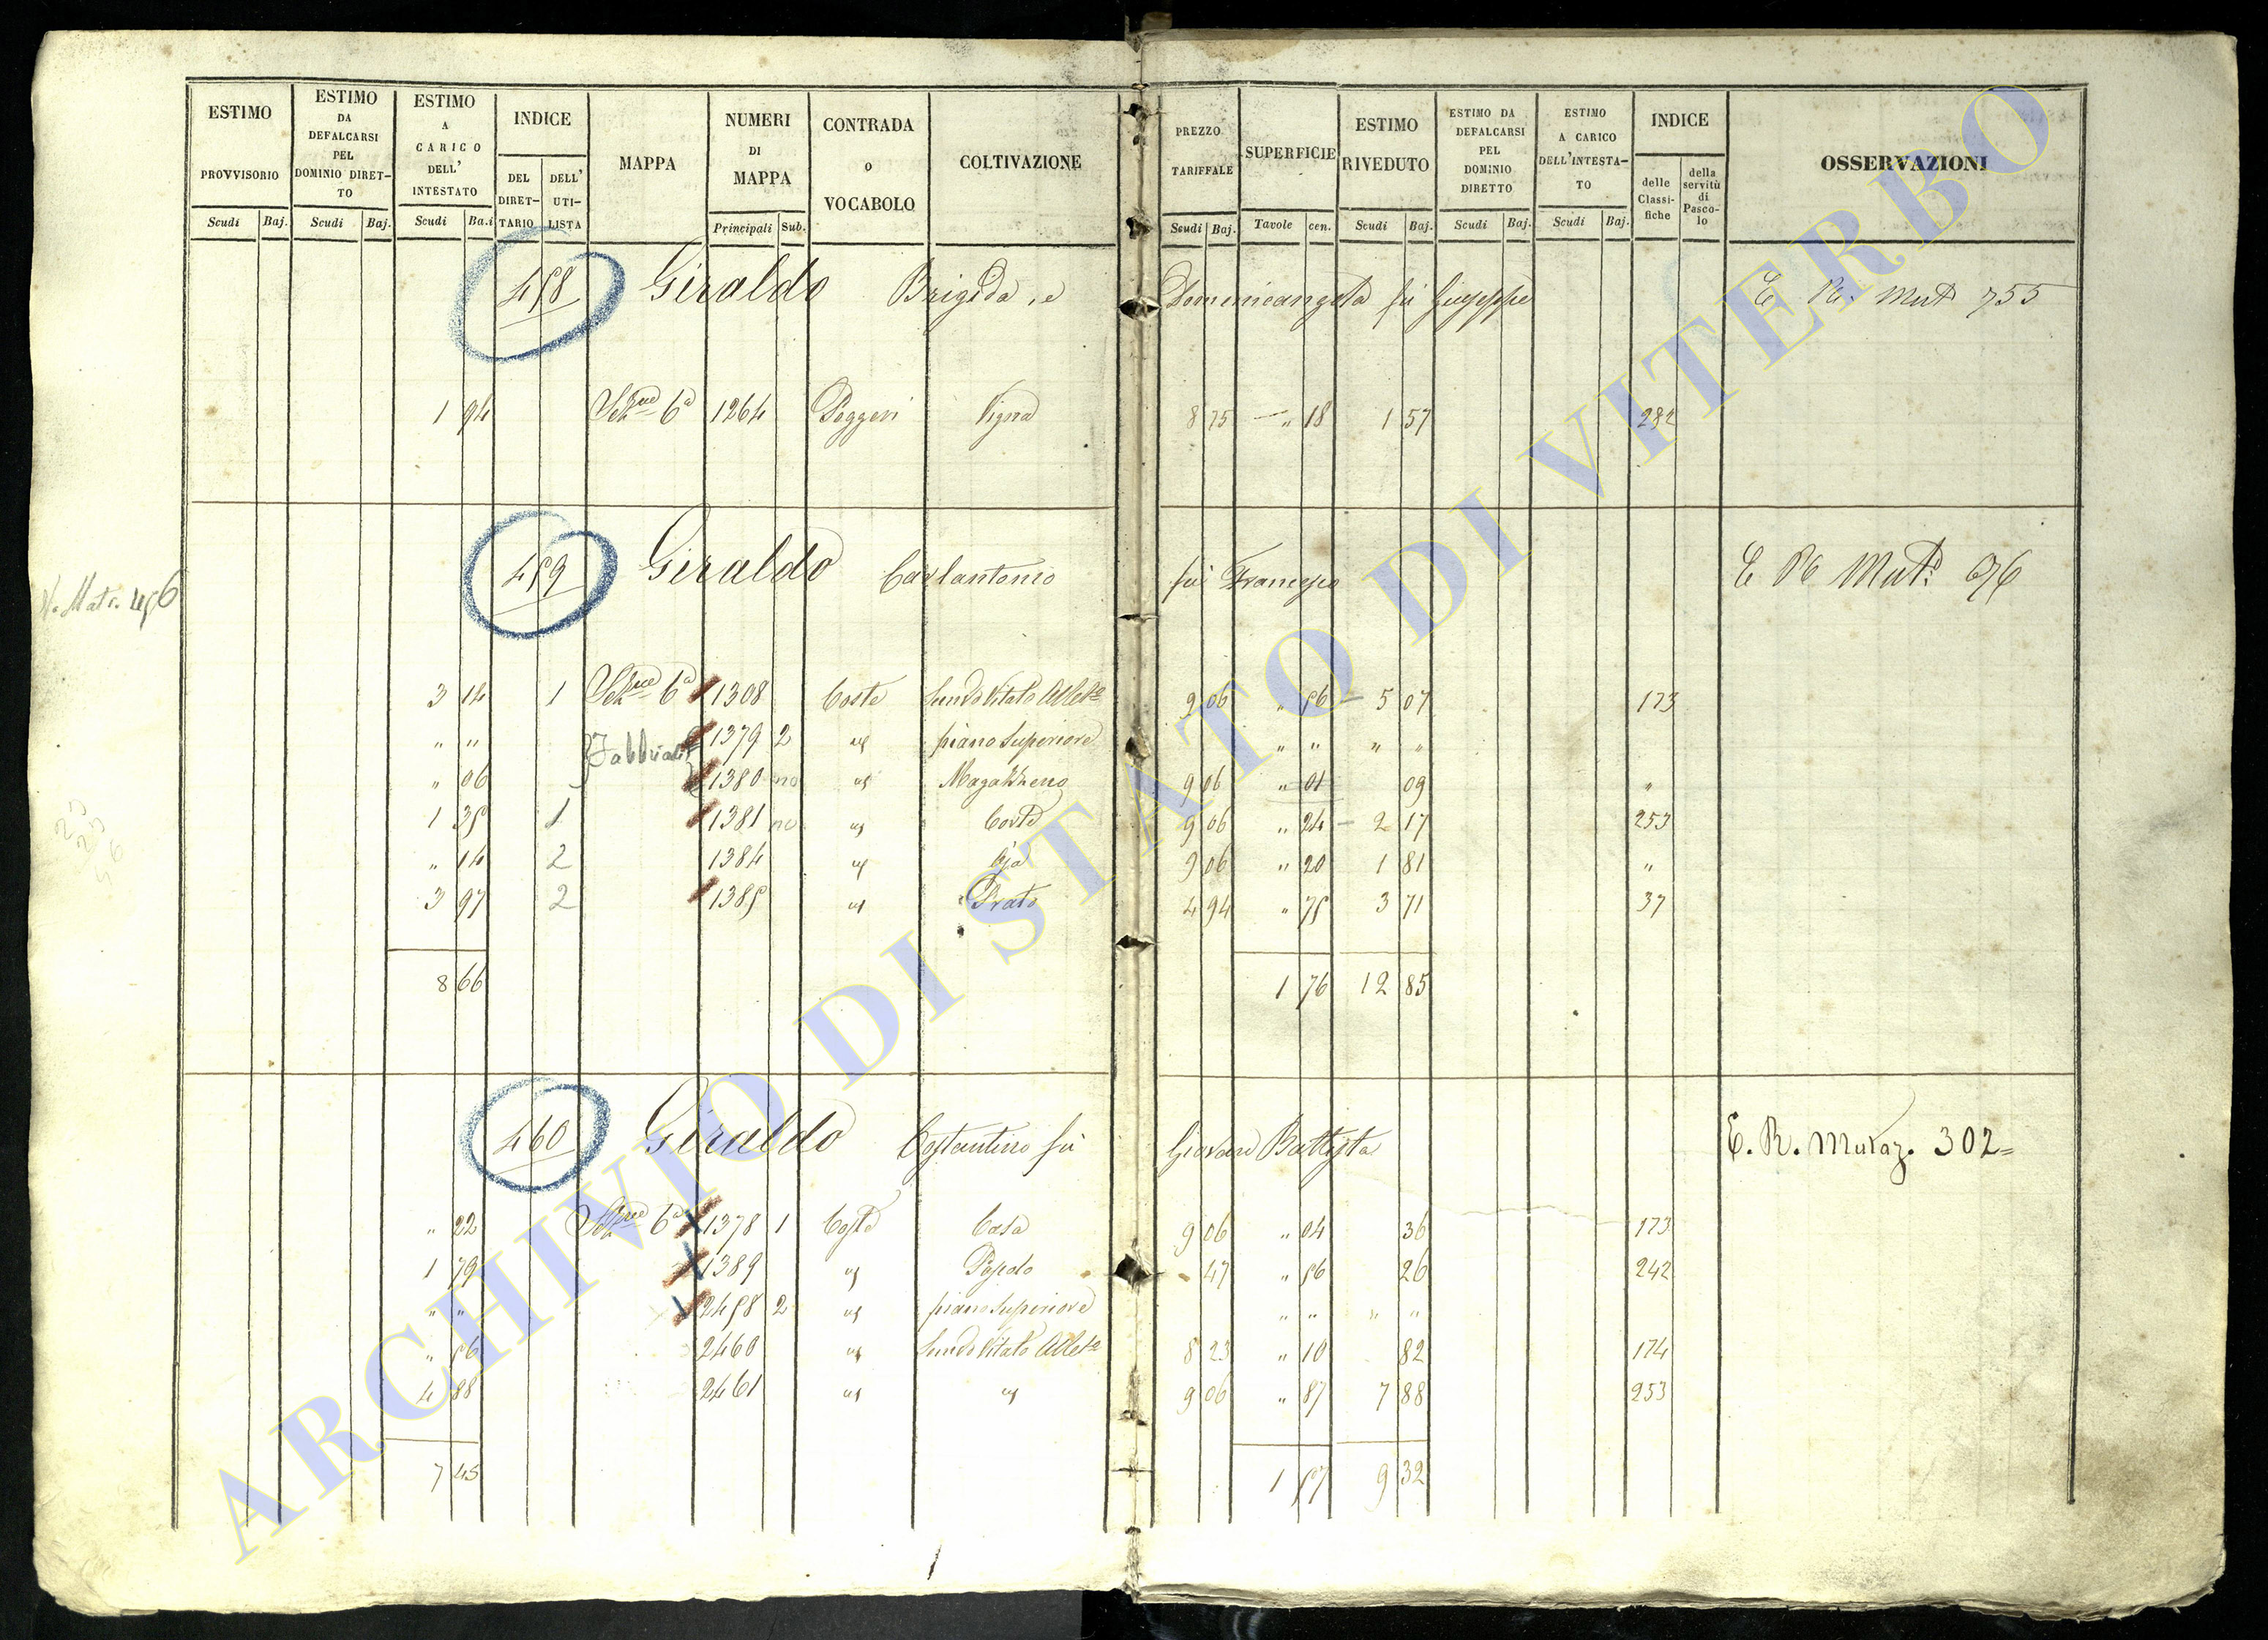 ESTIMO PROVVISORIO
Scudi Baj.
ESTIMO DA DEFALCARSI PEL DOMINIO DIRET-TO
Scudi Baj.
ESTIMO A CARICO DELL' INTESTATO
Scudi Ba.i
INDICE
DEL DIRET-TARIO
DELL' UTI-LISTA
MAPPA
NUMERI DI MAPPA
Principali Sub.
CONTRADA O VOCABOLO
COLTIVAZIONE
PREZZO TARIFFALE
Scudi Baj.
SUPERFICIE
Tavole cen.
ESTIMO RIVEDUTO
Scudi Baj.
ESTIMO DA DEFALCARSI PEL DOMINIO DIRETTO
Scudi Baj.
ESTIMO A CARICO DELL'INTESTA-TO
Scudi Baj.
INDICE
delle Classi-fiche
della servitù di Pasco-lo
OSSERVAZIONI
458 Giraldo Brigida, e Domenicangela fu Giuseppe Mut 755
1 94 Sez.ne 6a 1264 Poggeri Vigna 8 75 " 18 1 57 282
459 Giraldo Carlantonio fu Francesco Mut. 676
N. Matr. 456
3 14 1 Sez.ne 6a 1308 Coste Semvo Vitato 9 06 " 56 5 07 173
" " 1379 2 piano Superiore " " " "
" 06 1380 no Magazzeno 9 06 " 01 09 "
1 35 1 1381 no Corte 9 06 " 24 2 17 253
" 14 2 1384 Aja 9 06 " 20 1 81 "
3 97 2 1385 Prato 4 94 " 75 3 71 37
8 66 1 76 12 85
460 Giraldo Costantino fu Giovan Battista E. R. Mutaz. 302=
" 22 Sez.ne 6a 1378 1 Coste Casa 9 06 " 04 36 173
1 79 1389 Pascolo 47 " 56 26 242
" " 2458 2 piano Superiore " " " "
" 56 2460 Semvo Vitato 8 23 " 10 82 174
4 88 2461 9 06 " 87 7 88 253
7 45 1 57 9 32
ARCHIVIO DI STATO DI VITERBO